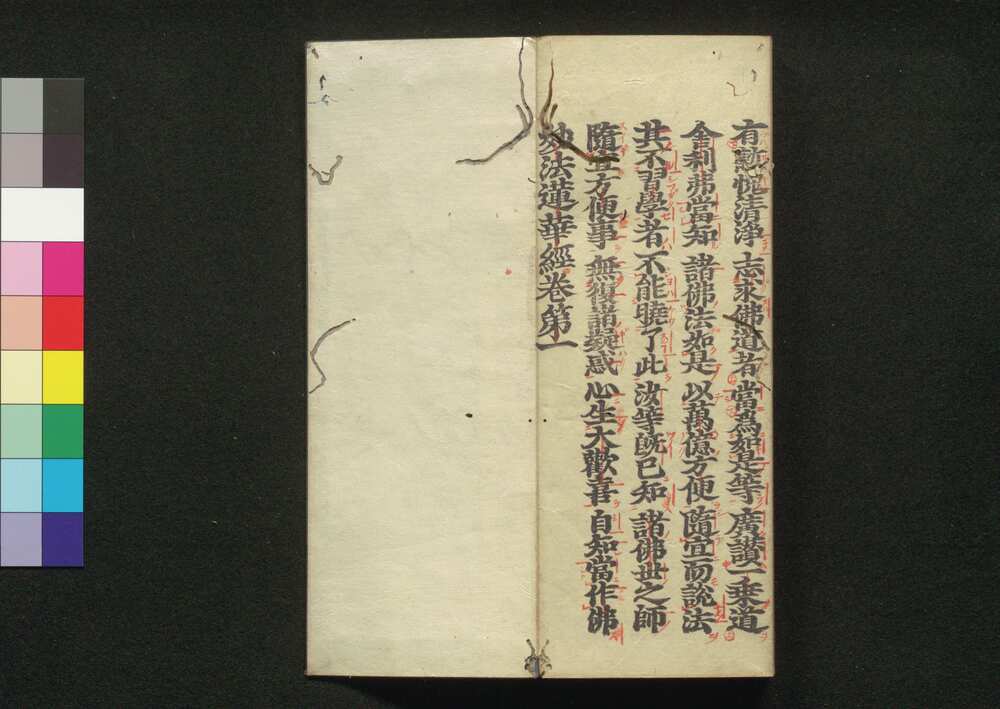 有慙愧清淨 志求佛道者 當為如是等 廣讃一乗道
舍利弗當知 諸佛法如是 以萬億方便 隨宜而說法
其不習學者 不能曉了此 汝等既已知 諸佛世之師
隨宜方便事 無復諸疑惑 心生大歡喜 自知當作佛
妙法蓮華經卷第一